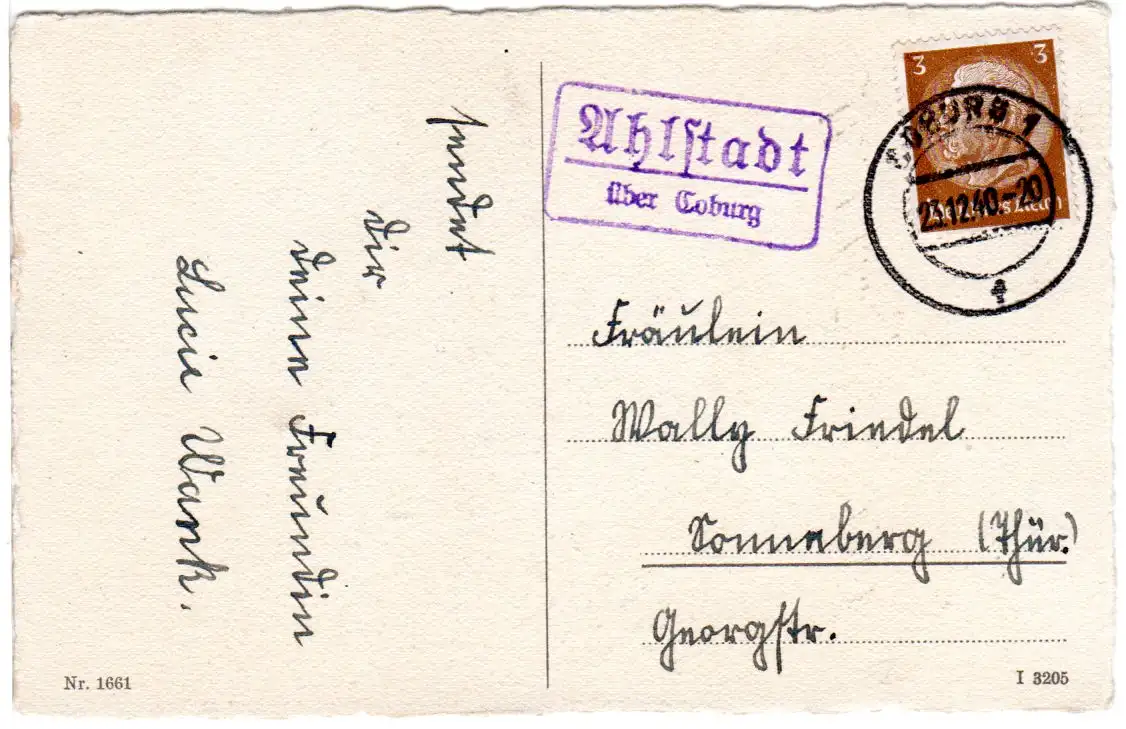 sendet
dir
deine Freundin
Lucie Wank.
Ahlstadt
über Coburg
3 3
Deutsches Reich
COBURG 1
23.12.40.-20
Fräulein
Wally Friedel
Sonneberg (Thür.)
Georgstr.
Nr. 1661
I 3205